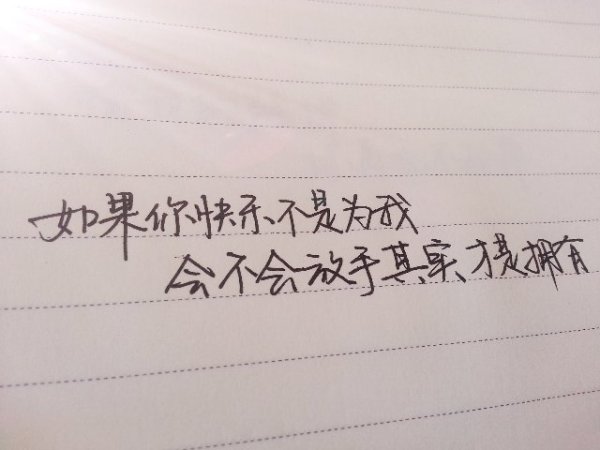 如果你快乐不是为我
会不会放手其实才是拥有